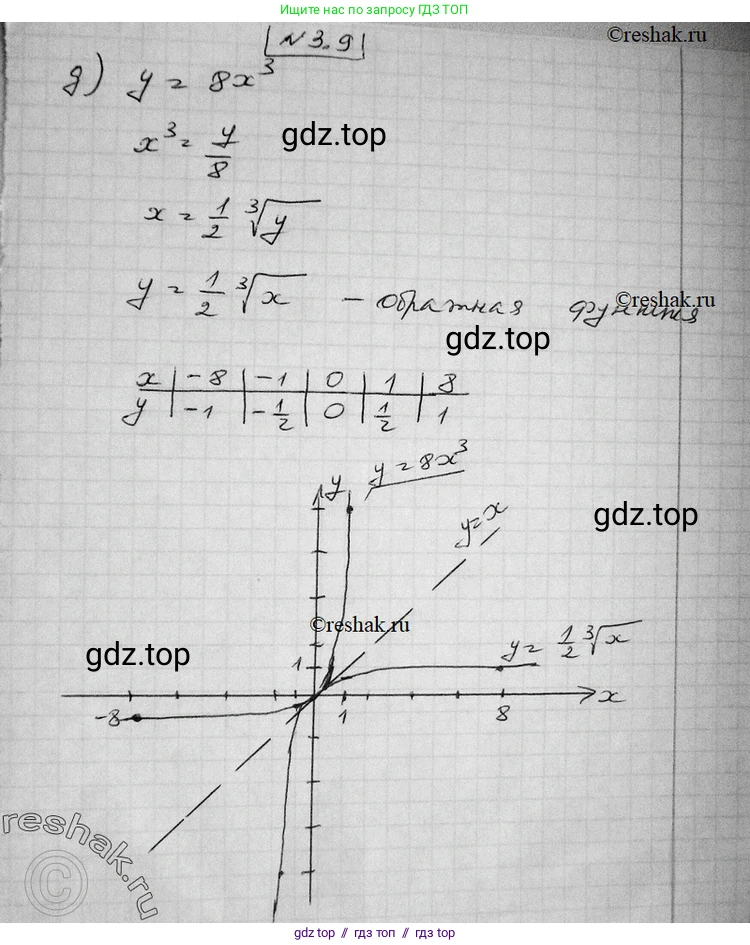 Ищите нас по запросу ГДЗ ТОП
©reshak.ru
№3.9
д) y = 8x³
x³ = y/8
gdz.top
x = 1/2 ∛y
y = 1/2 ∛x — обратная функция
©reshak.ru
gdz.top
x | -8 | -1 | 0 | 1 | 8
y | -1 | -1/2 | 0 | 1/2 | 1
y = 8x³
y
y=x
gdz.top
©reshak.ru
y = 1/2 ∛x
gdz.top
1
-8 1 8 x
reshak.ru
©
gdz.top // гдз топ // gdz.top